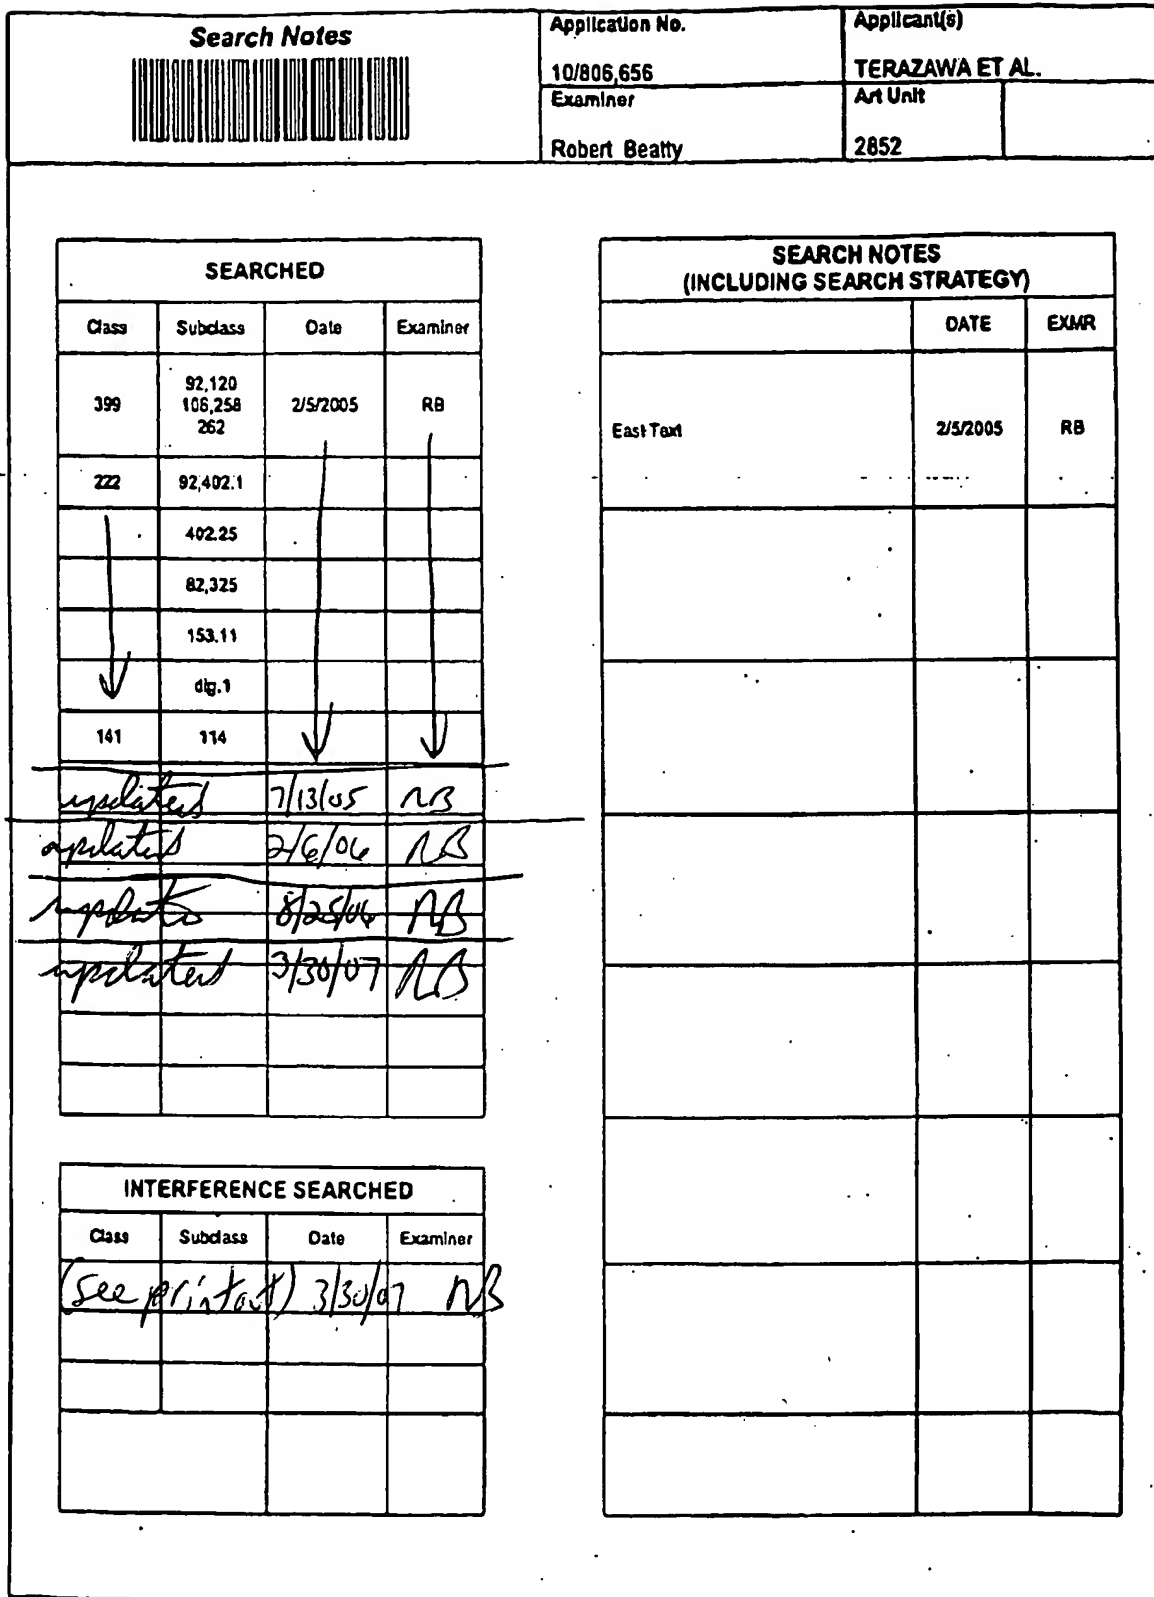 Search Notes
Application No.
Applicant(s)
10/806,656
TERAZAWA ET AL.
Examiner
Art Unit
Robert Beatty
2852
SEARCHED
Class Subclass Date Examiner
399
92,120
106,258
262
2/5/2005 RB
222 92,402.1
402.25
82,325
153.11
dig.1
141 114
updated 7/13/05 RB
updated 2/6/06 RB
updated 8/25/06 RB
updated 3/30/07 RB
INTERFERENCE SEARCHED
Class Subclass Date Examiner
(see printout) 3/30/07 RB
SEARCH NOTES
(INCLUDING SEARCH STRATEGY)
DATE EXMR
East Text 2/5/2005 RB